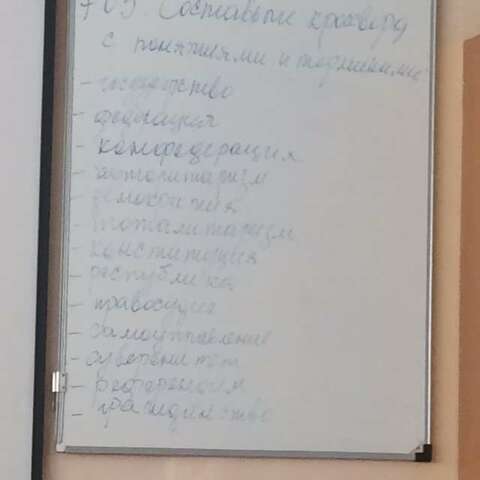 703. Составить кроссворд
с понятиями и терминами
- государство
- федерация
- конфедерация
- тоталитаризм
- конституция
- республика
- правосудие
- самоуправление
- суверенитет
- референдум
- гражданство